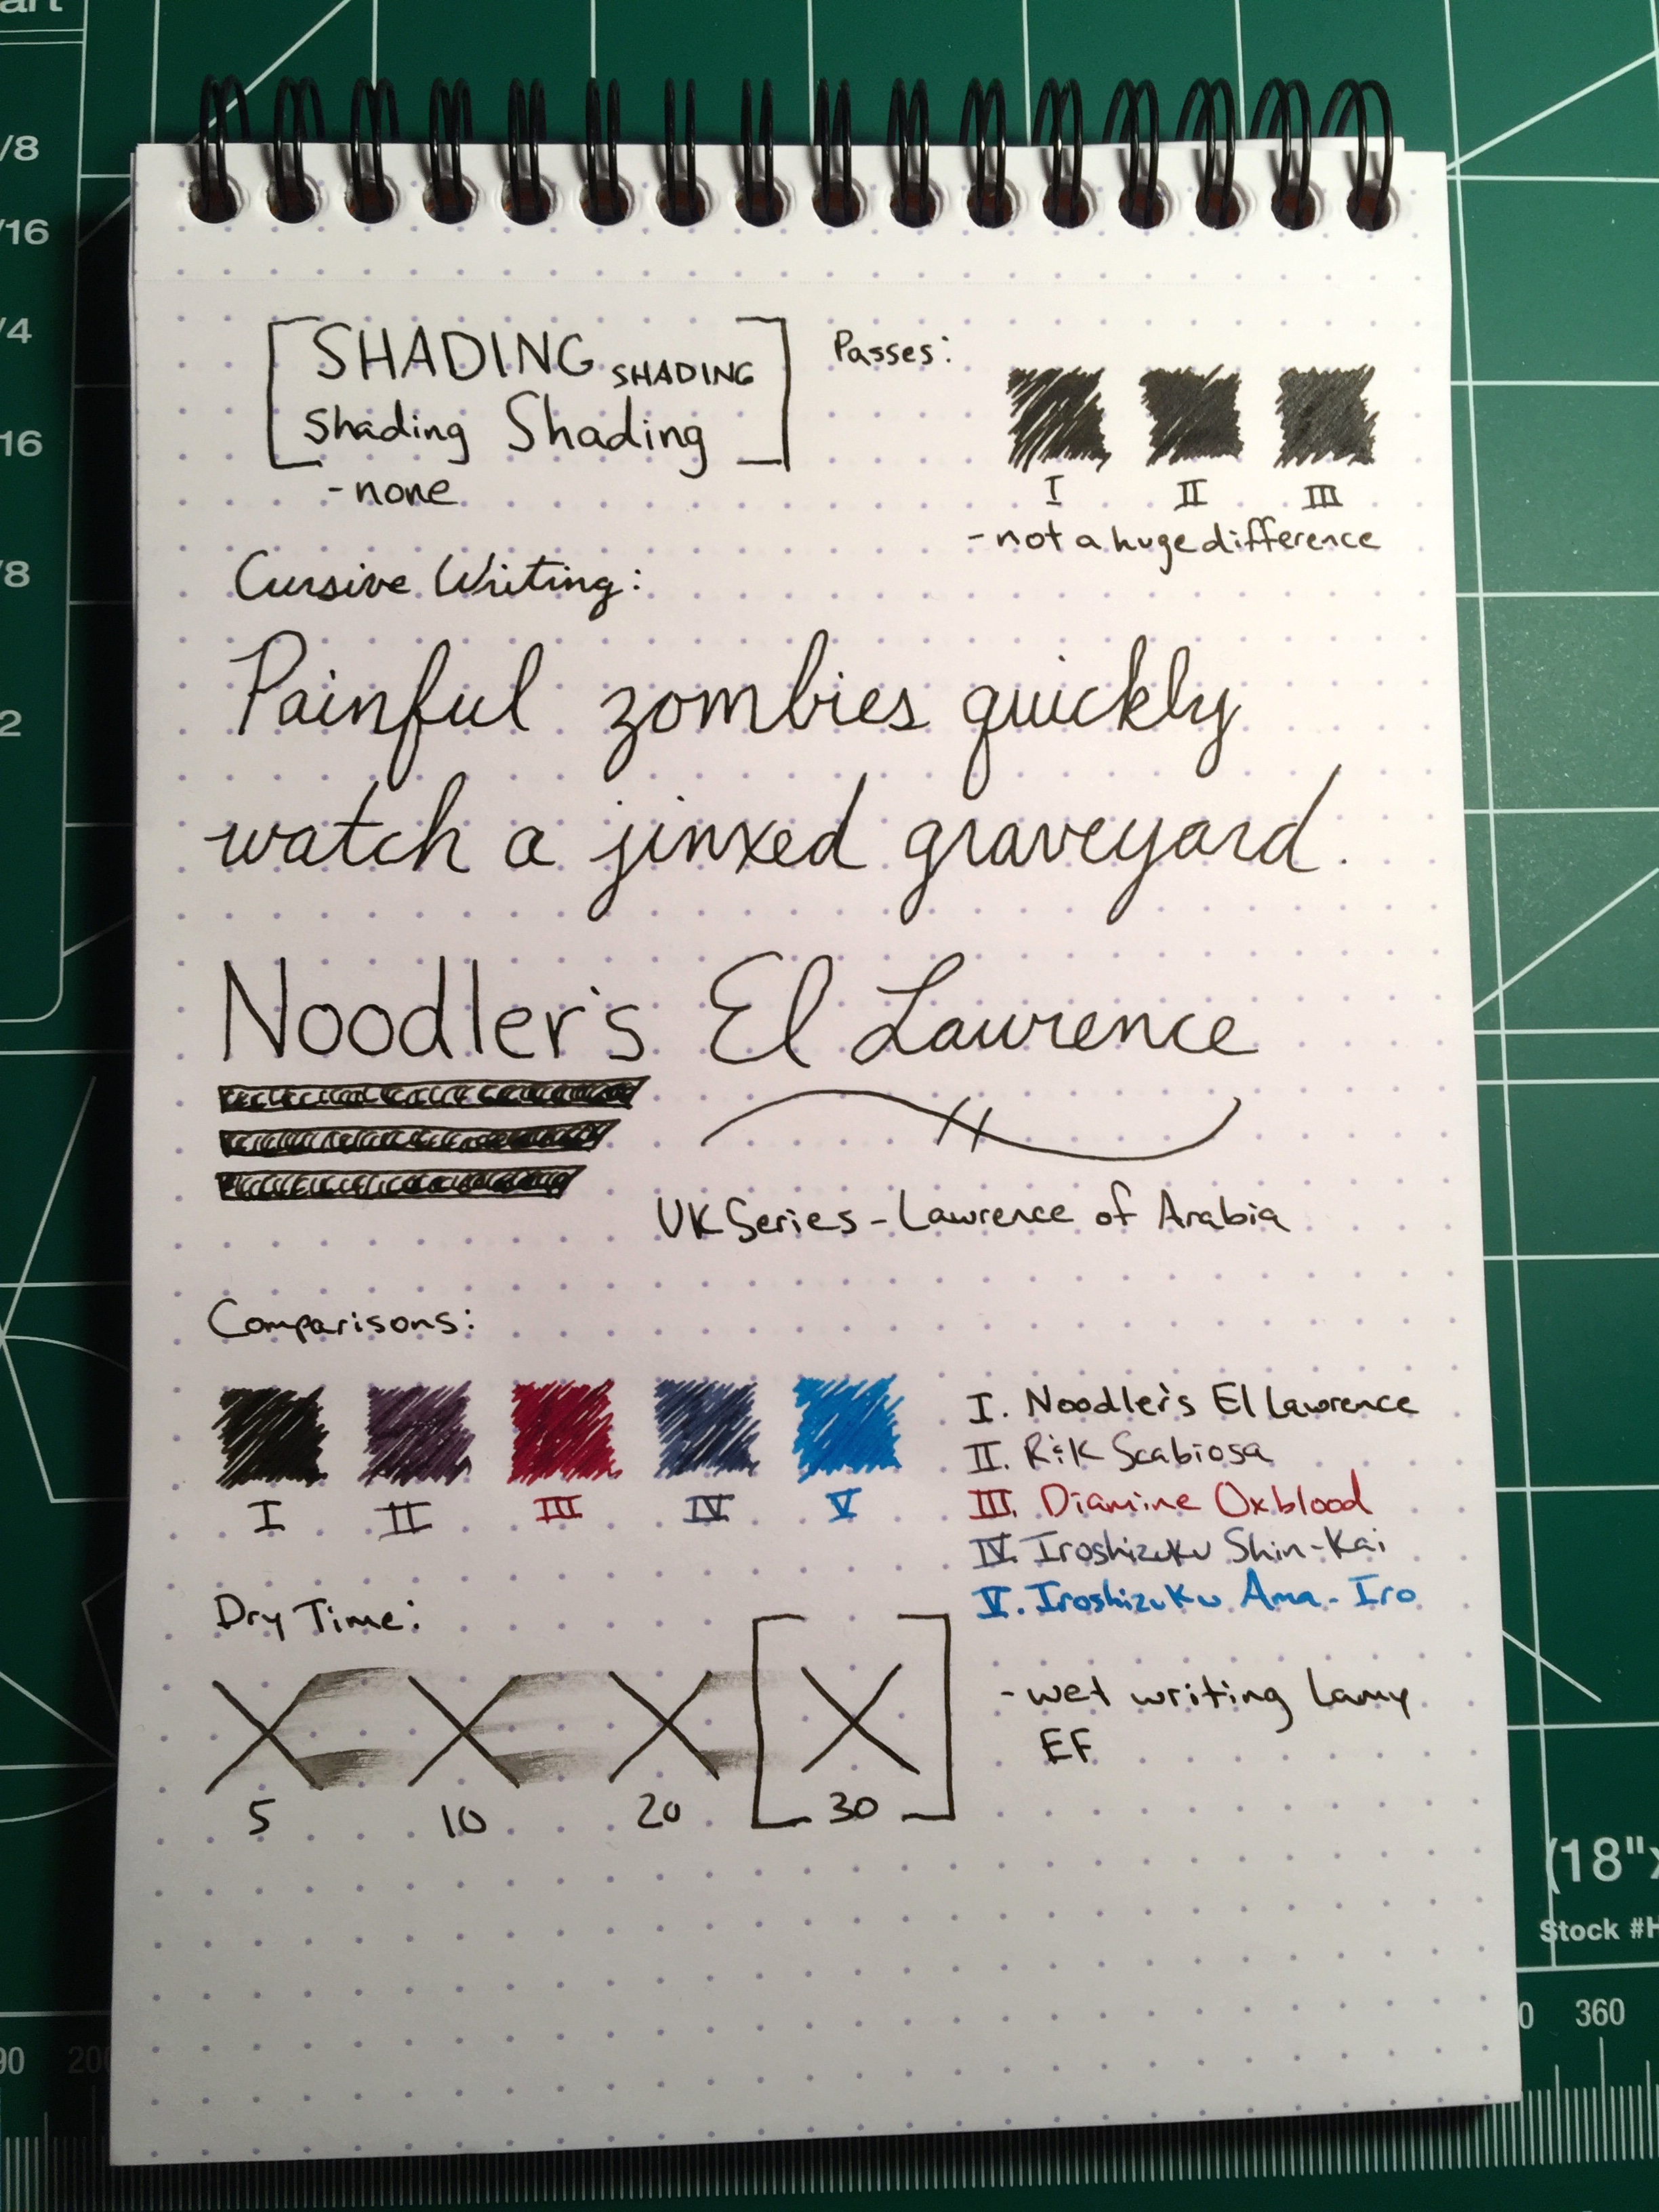 SHADING SHADING
shading Shading
-none
Passes:
I II III
-not a huge difference
Cursive Writing:
Painful zombies quickly
watch a jinxed graveyard.
Noodler's El Lawrence
UK Series - Lawrence of Arabia
Comparisons:
I II III IV V
I. Noodler's El Lawrence
II. R&K Scabiosa
III. Diamine Oxblood
IV. Iroshizuku Shin-Kai
V. Iroshizuku Ama-Iro
Dry Time:
5 10 20 30
-wet writing Lamy
EF
/8
/16
/4
16
/8
2
(18"x
Stock #H
90 200
0 360